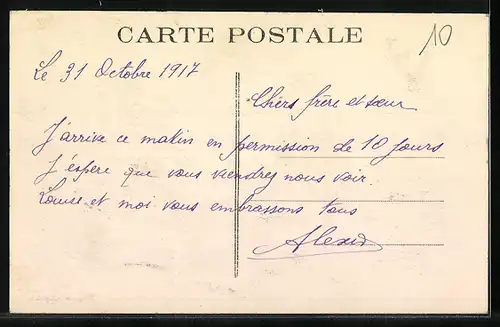 CARTE POSTALE
10
Le 31 Octobre 1917
Chers frère et sœur
J'arrive ce matin en permission de 10 jours
J'espère que vous viendrez nous voir.
Louise et moi vous embrassons tous
Alexis